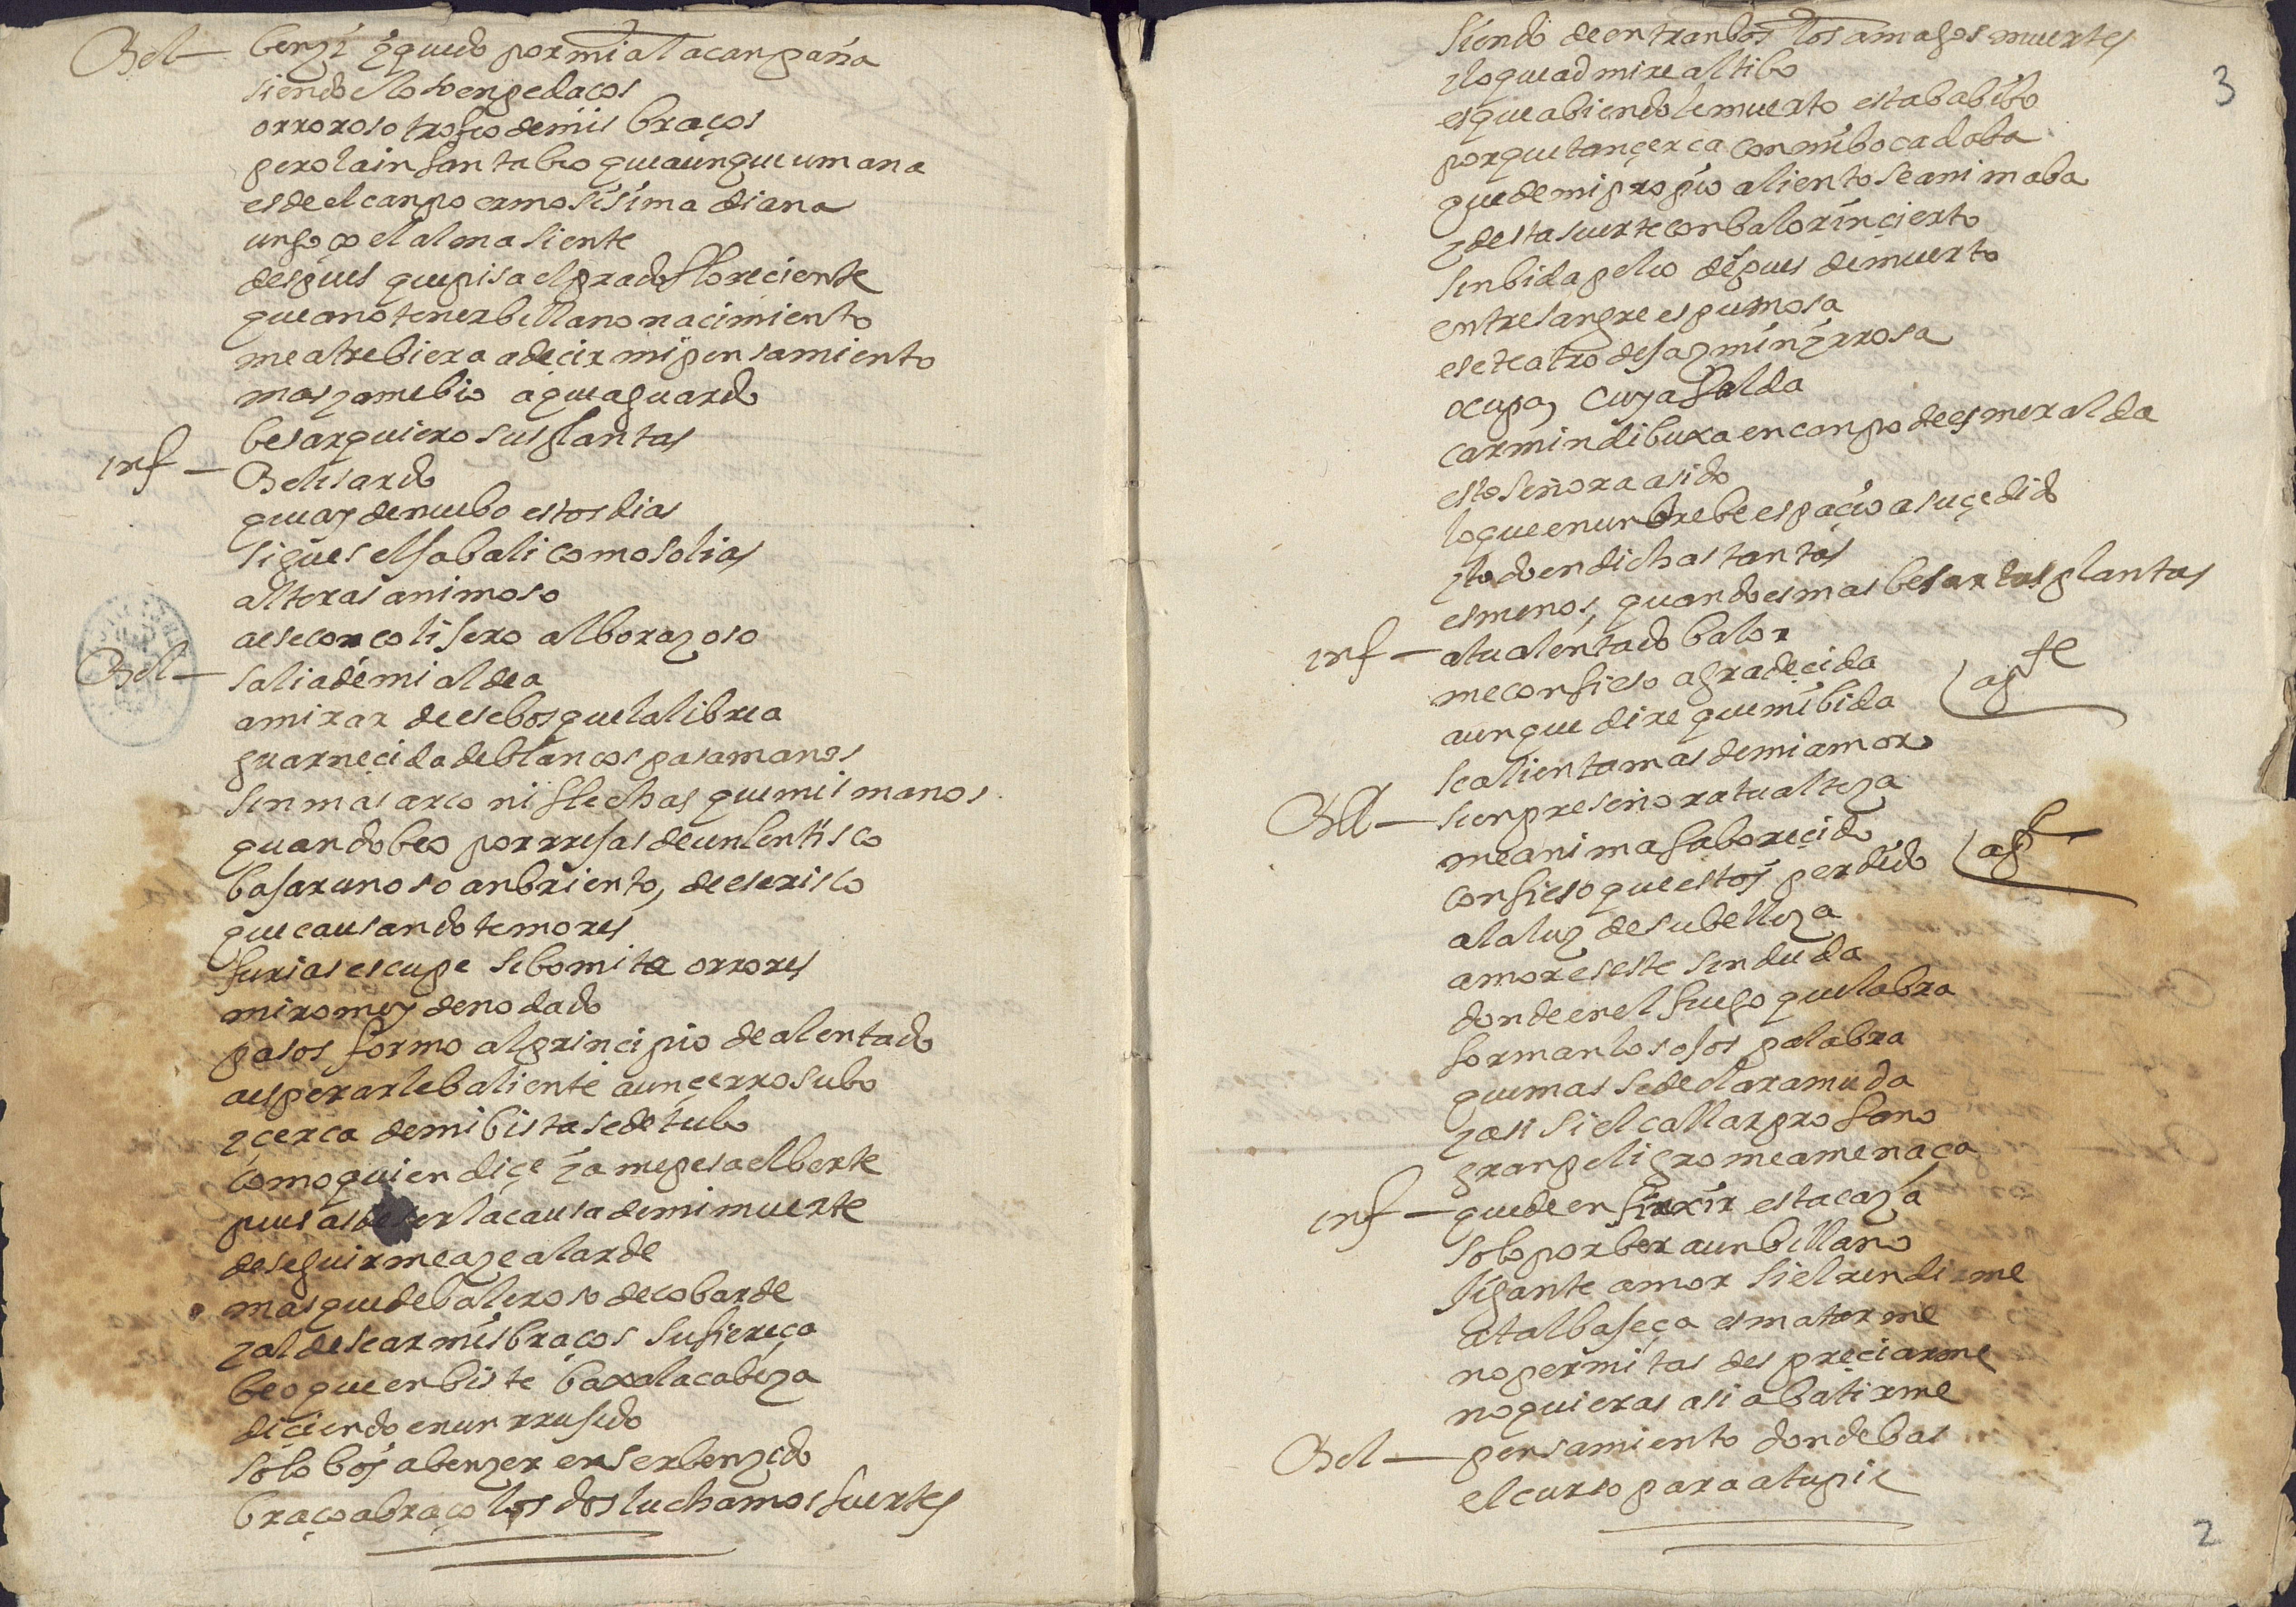 Bel — benzi y quedo por mi a la canpaña
siendo el oso en pedaços
orroroso trofeo de mis braços
pero la infanta beo que aunque umana
es de el canpo ermosisima diana
un goço el alma siente
despues que pisa el prado floreciente
que a no tener billano nacimiento
me atrebiera a decir mi pensamiento
mas ya me bio a que aguardo
besar quiero sus plantas
inf — Belisardo
que ay de nuebo estos dias
sigues el jabali como solias
alteras animoso
a ese concolifero alborozoso
Bel — sali a de mi aldea
a mirar de ese bosque la librea
guarnecida de blancos pasamanos
sin mas arco ni flechas que mis manos
quando beo por rrejas de un lentisco
bajar un oso anbriento, de ese risco
que causando temores
furias escupe si bomita orrores
mirome y denodado
pasos formo al principio de alentado
a esperarle baliente a un cerro subo
y çerca de mi bista se detubo
como quien diçe ya me pesa el berte
pues as de ser la causa de mi muerte
de seguirme açe alarde
mas que de baleroso de cobarde
y al desear mis braços su fiereça
beo que enbiste baxa la cabeza
diciendo en un rrujido
solo bos a benzer en ser benzido
braço a braço los dos luchamos fuertes
3
siendo de entranbos los amagos muertes
y lo que admire altibo
es que abiendole muerto estaba bibo
porque tan çerca con mi boca daba
que de mi propio aliento se animaba
y desta suerte con balor inçierto
sin bida peleo despues de muerto
entre sangre espumosa
ese teatro de jazmin y rrosa
ocupa, cuya falda
carmin dibuxa en canpo de esmeralda
esto señora a sido
lo que en un brebe espaçio a suçedido
y todo en dichas tantas
es menos, quando es mas besar tus plantas
inf — a tu alentado balor
me confieso agradeçida
aunque dire que mi bida ap te
se alienta mas de mi amor
Bel — sienpre señora tu alteza
me anima faborecido
confieso que estoy perdido ap te
a la luz de su belleza
amor es este sin duda
donde en el fuego que labra
forman los ojos palabra
que mas se declara muda
y asi si el callar profano
gran peligro me amenaça
inf — que de en finxir esta caza
solo por ber a un billano
jigante amor si el rendirme
a tal bajeça es matarme
no permitas despreciarme
no quieras asi abatirme
Bel — pensamiento donde bas
el curso para a tu pie
2